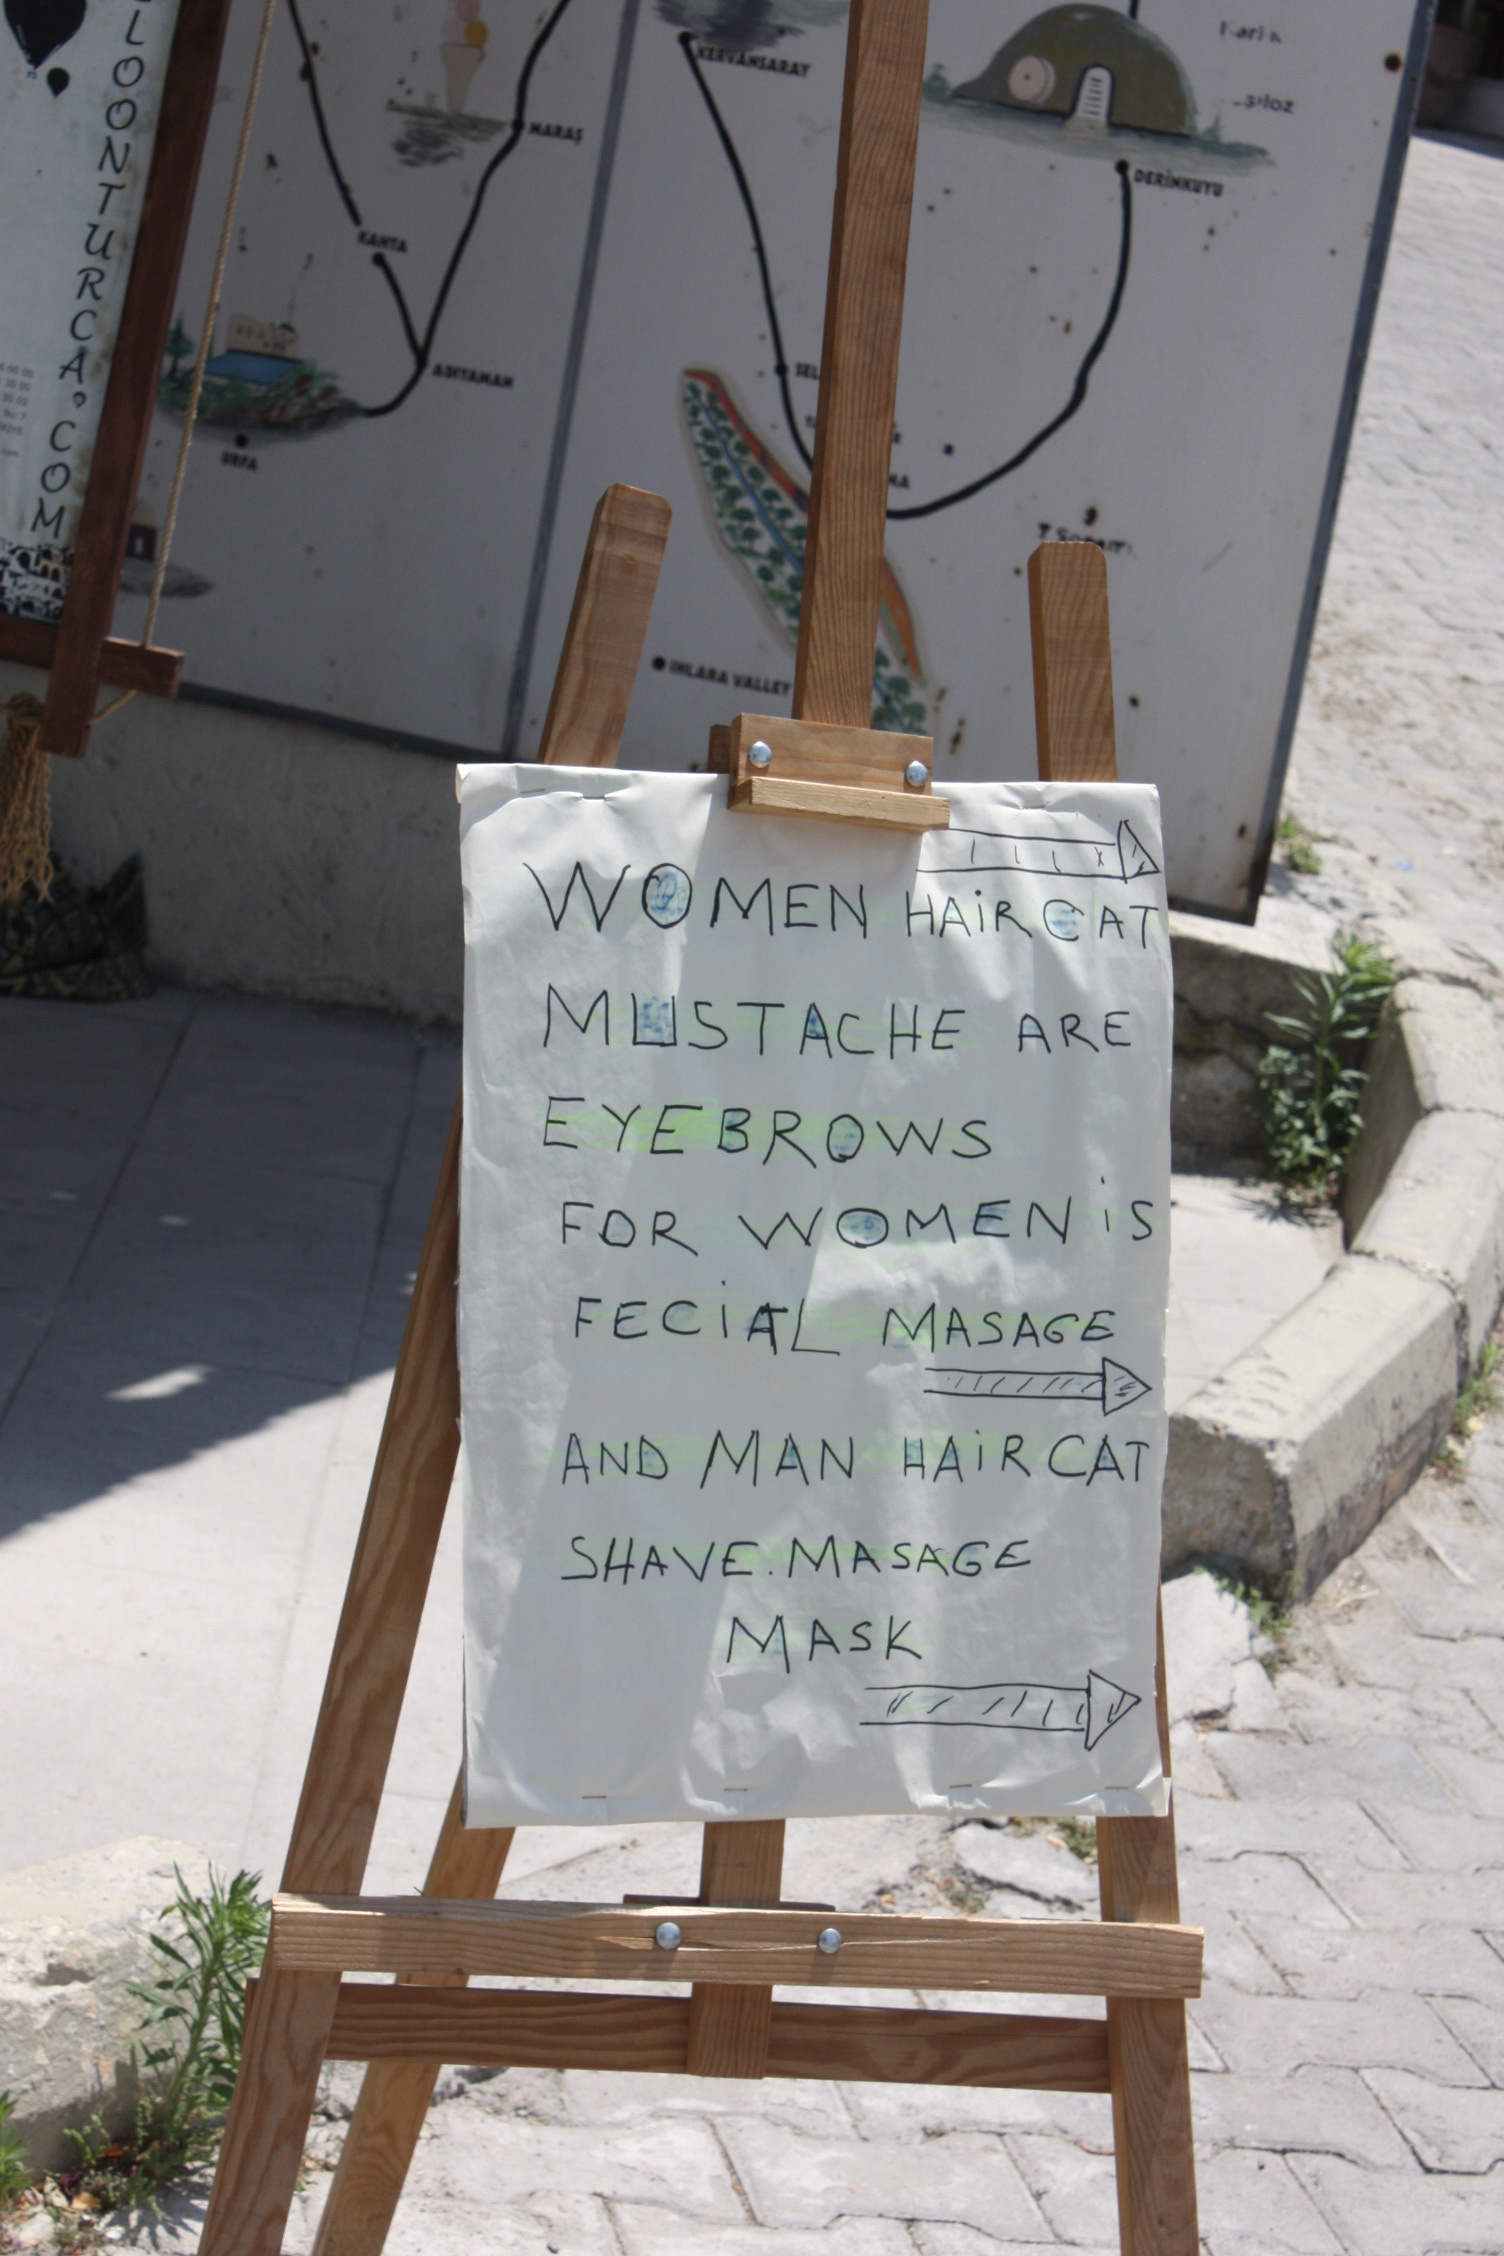 LOONTURCA.COM
MARAŞ
KAHTA
ADIYAMAN
URFA
KERVANSARAY
DERİNKUYU
IHLARA VALLEY
WOMEN HAiRCAT
MUSTACHE ARE
EYEBROWS
FOR WOMEN iS
FECiAL MASAGE
AND MAN HAiRCAT
SHAVE.MASAGE
MASK